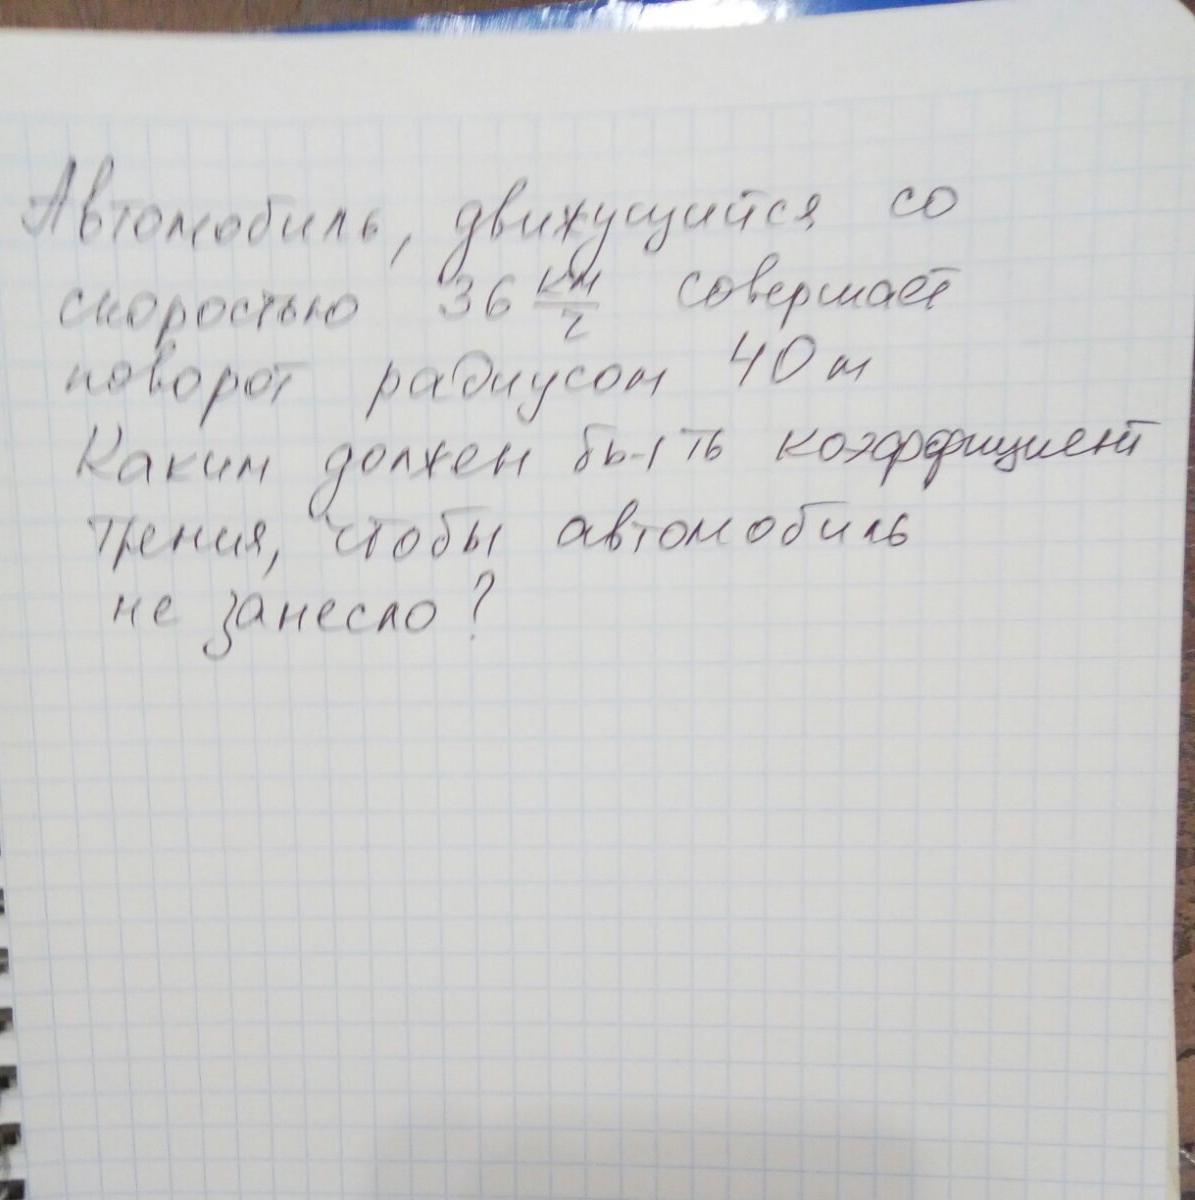 Автомобиль, движущийся со
скоростью 36 км/ч совершает
поворот радиусом 40 м
Каким должен быть коэффициент
трения, чтобы автомобиль
не занесло?